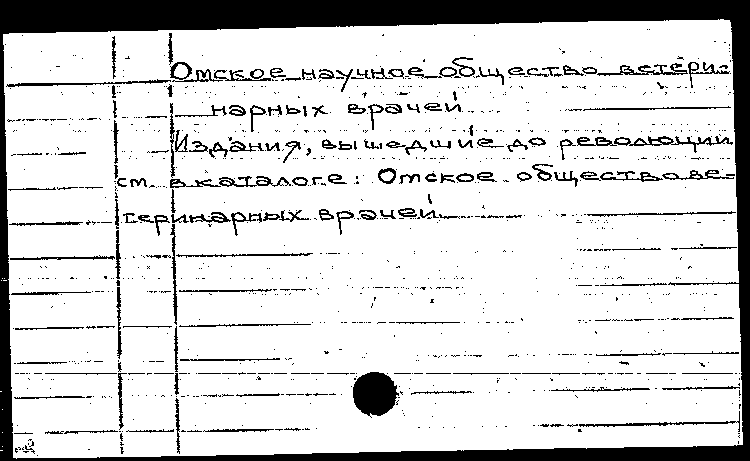 Омское научное общество ветери=
нарных врачей
Издания, вышедшие до революции
см. в каталоге: Омское общество ве=
теринарных врачей.